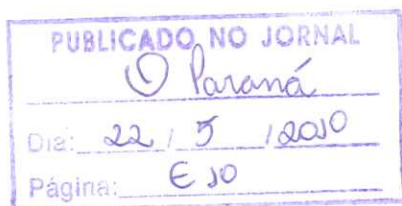 PUBLICADO NO JORNAL
O Paraná
Dia: 22 / 5 / 2010
Página: E 10